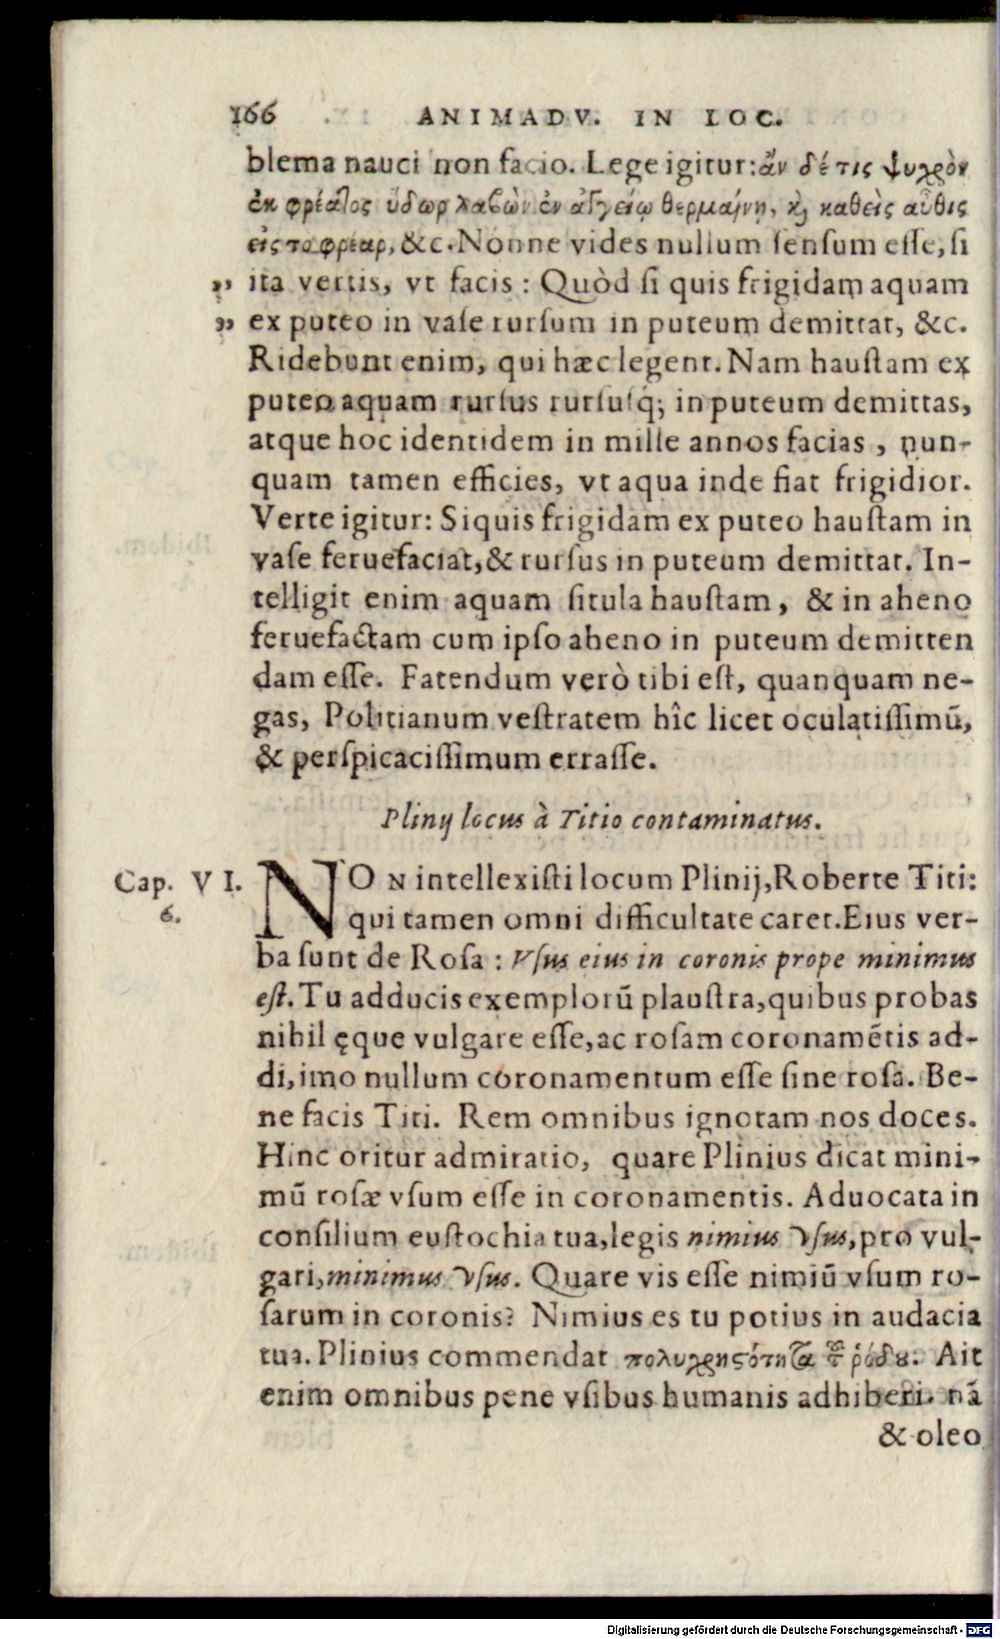 166 ANIMADV. IN LOC.
blema nauci non facio. Lege igitur: ἄν δέ τις ψυχρὸν
ἐκ φρέατος ὕδωρ λαβὼν ἐν ἀγγείῳ θερμαίνῃ, ϗ καθεὶς αὖθις
εἰς το φρέαρ, &c. Nonne vides nullum ſenſum eſſe, ſi
„ ita vertis, vt facis: Quòd ſi quis frigidam aquam
„ ex puteo in vaſe rurſum in puteum demittat, &c.
Ridebunt enim, qui hæc legent. Nam hauſtam ex
puteo aquam rurſus rurſuſq́; in puteum demittas,
atque hoc identidem in mille annos facias, nun-
quam tamen efficies, vt aqua inde fiat frigidior.
Verte igitur: Siquis frigidam ex puteo hauſtam in
vaſe feruefaciat, & rurſus in puteum demittat. In-
telligit enim aquam ſitula hauſtam, & in aheno
feruefactam cum ipſo aheno in puteum demitten
dam eſſe. Fatendum verò tibi eſt, quanquam ne-
gas, Politianum veſtratem hîc licet oculatiſſimū,
& perſpicaciſſimum erraſſe.
Plinij locus à Titio contaminatus.
Cap. VI.
6.
NON intellexiſti locum Plinij, Roberte Titi:
qui tamen omni difficultate caret. Eius ver-
ba ſunt de Roſa: Vſus eius in coronis prope minimus
eſt. Tu adducis exemplorū plauſtra, quibus probas
nihil ęque vulgare eſſe, ac roſam coronamētis ad-
di, imo nullum coronamentum eſſe ſine roſa. Be-
ne facis Titi. Rem omnibus ignotam nos doces.
Hinc oritur admiratio, quare Plinius dicat mini-
mū roſæ vſum eſſe in coronamentis. Aduocata in
conſilium euſtochia tua, legis nimius vſus, pro vul-
gari, minimus vſus. Quare vis eſſe nimiū vſum ro-
ſarum in coronis? Nimius es tu potius in audacia
tua. Plinius commendat πολυχρηστότητα τοῦ ῥόδου. Ait
enim omnibus pene vſibus humanis adhiberi. nā
& oleo
Digitalisierung gefördert durch die Deutsche Forschungsgemeinschaft - DFG